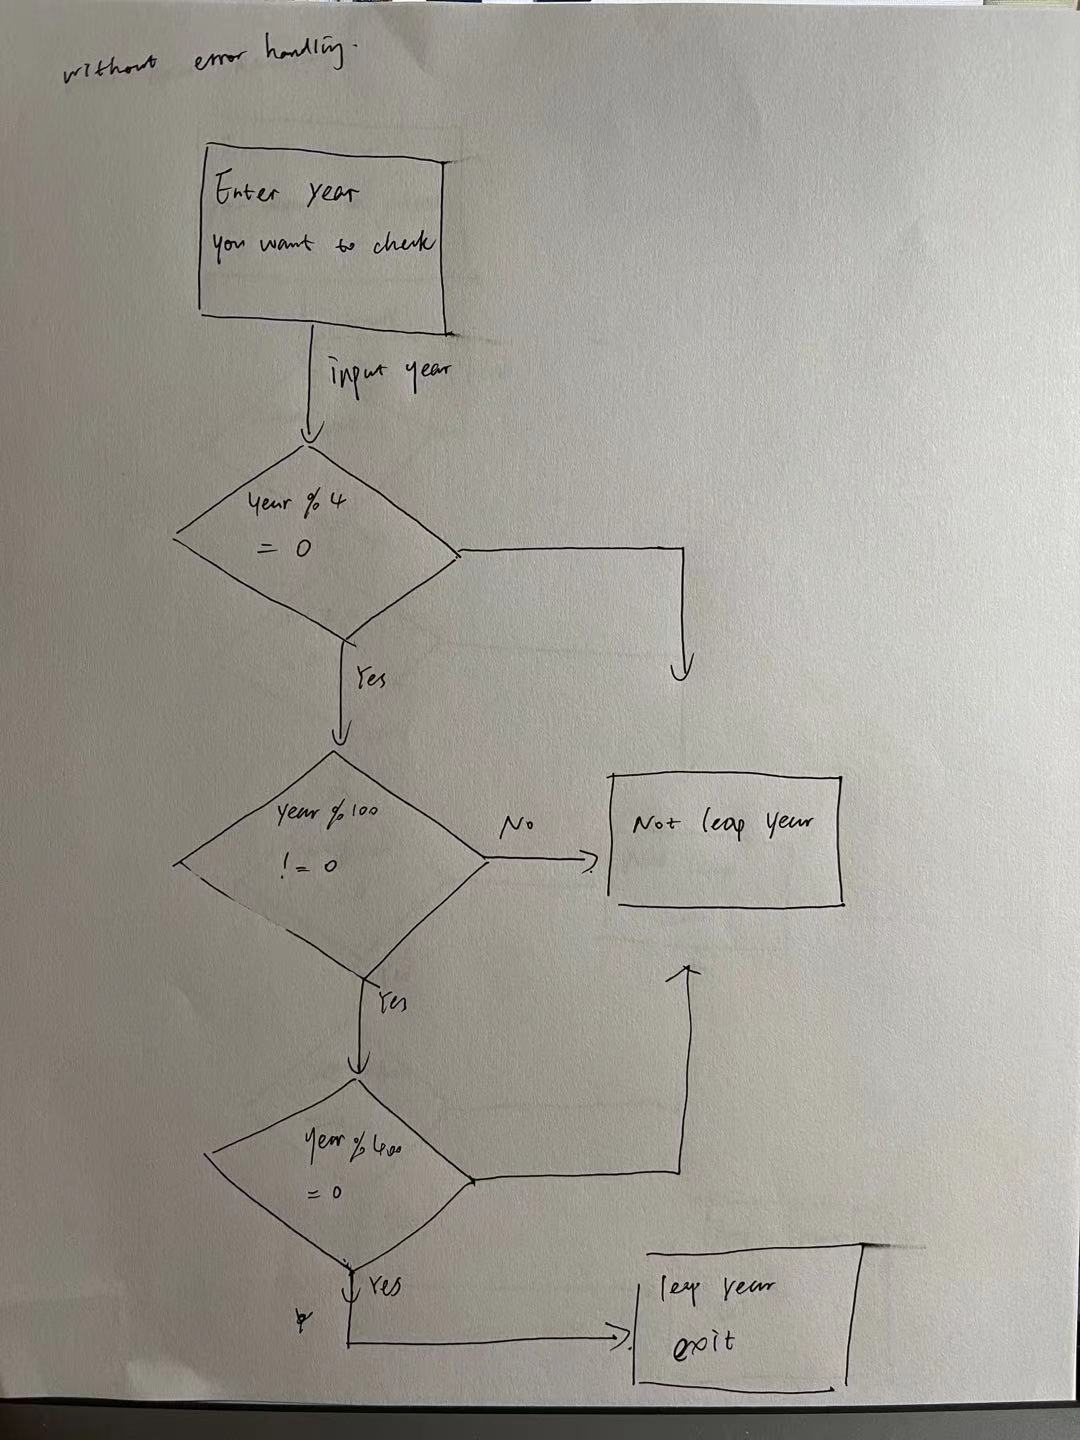 without error handling.
Enter year
you want to check
input year
year % 4
= 0
Yes
year % 100
!= 0
No
Not leap year
Yes
year % 400
= 0
Yes
leap year
exit